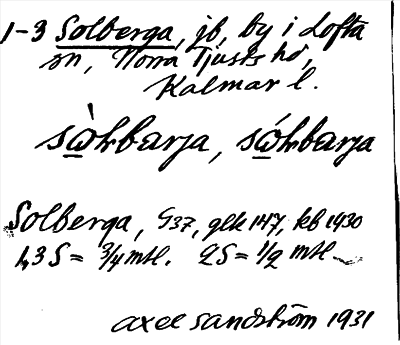 1-3 Solberga, jb, by i Lofta
sn, Norra Tjusts hd,
Kalmar l.
sὼhbarja, sώhbarja
Solberga, G37, glk 147, kb 1930
1,3 S = 3/4 mtl. 2S = 1/2 mtl
axel sandström 1931